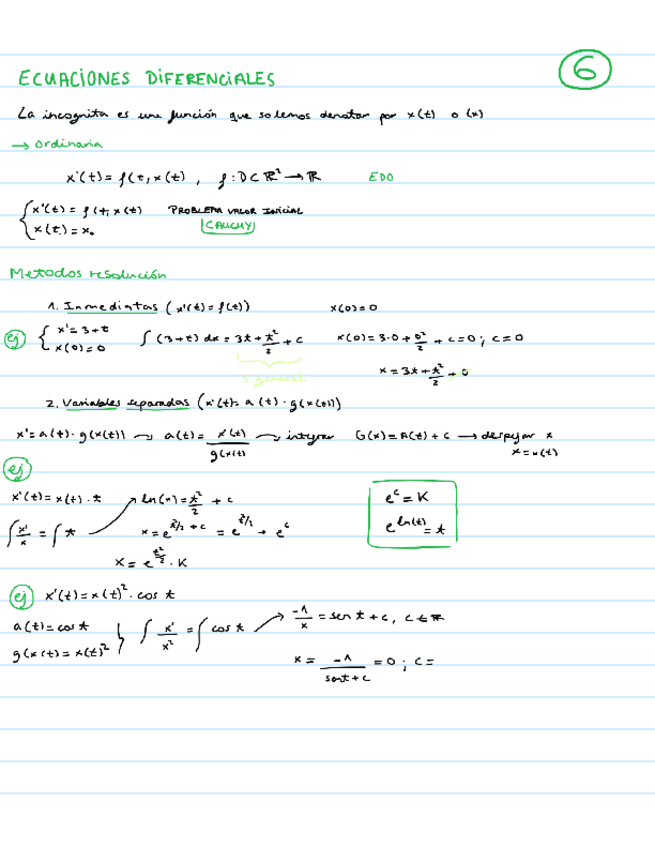 ECUACIONES DIFERENCIALES
6
La incognita es una función que solemos denotar por x(t) o (x)
→ Ordinaria
x'(t) = f(t, x(t), f: D ⊂ ℝ² → ℝ EDO
{ x'(t) = f(t, x(t) PROBLEMA VALOR INICIAL
x(t.) = x. CAUCHY
Metodos resolución
1. Inmediatas (x'(t) = f(t)) x(0) = 0
ej { x' = 3+t ∫(3+t) dx = 3t + t²/2 + c x(0) = 3·0 + 0²/2 + c = 0 ; c = 0
x(0) = 0
s. general x = 3t + t²/2 + 0
2. Variables separadas (x'(t) = a(t) · g(x(t))
x' = a(t) · g(x(t)) ⤳ a(t) = x'(t)/g(x(t) ⤳ integrar G(x) = A(t) + c → despejar x
x = x(t)
ej
x'(t) = x(t) · t ln(x) = t²/2 + c e^c = K
∫ x'/x = ∫ t x = e^(t²/2 + c) = e^(t²/2) + e^c e^(ln(t)) = t
x = e^(t²/2) · K
ej x'(t) = x(t)² · cos t
a(t) = cos t ∫ x'/x² = ∫ cos t -1/x = sen t + c, c ∈ ℝ
g(x(t) = x(t)²
x = -1/(sent + c) = 0 ; c =